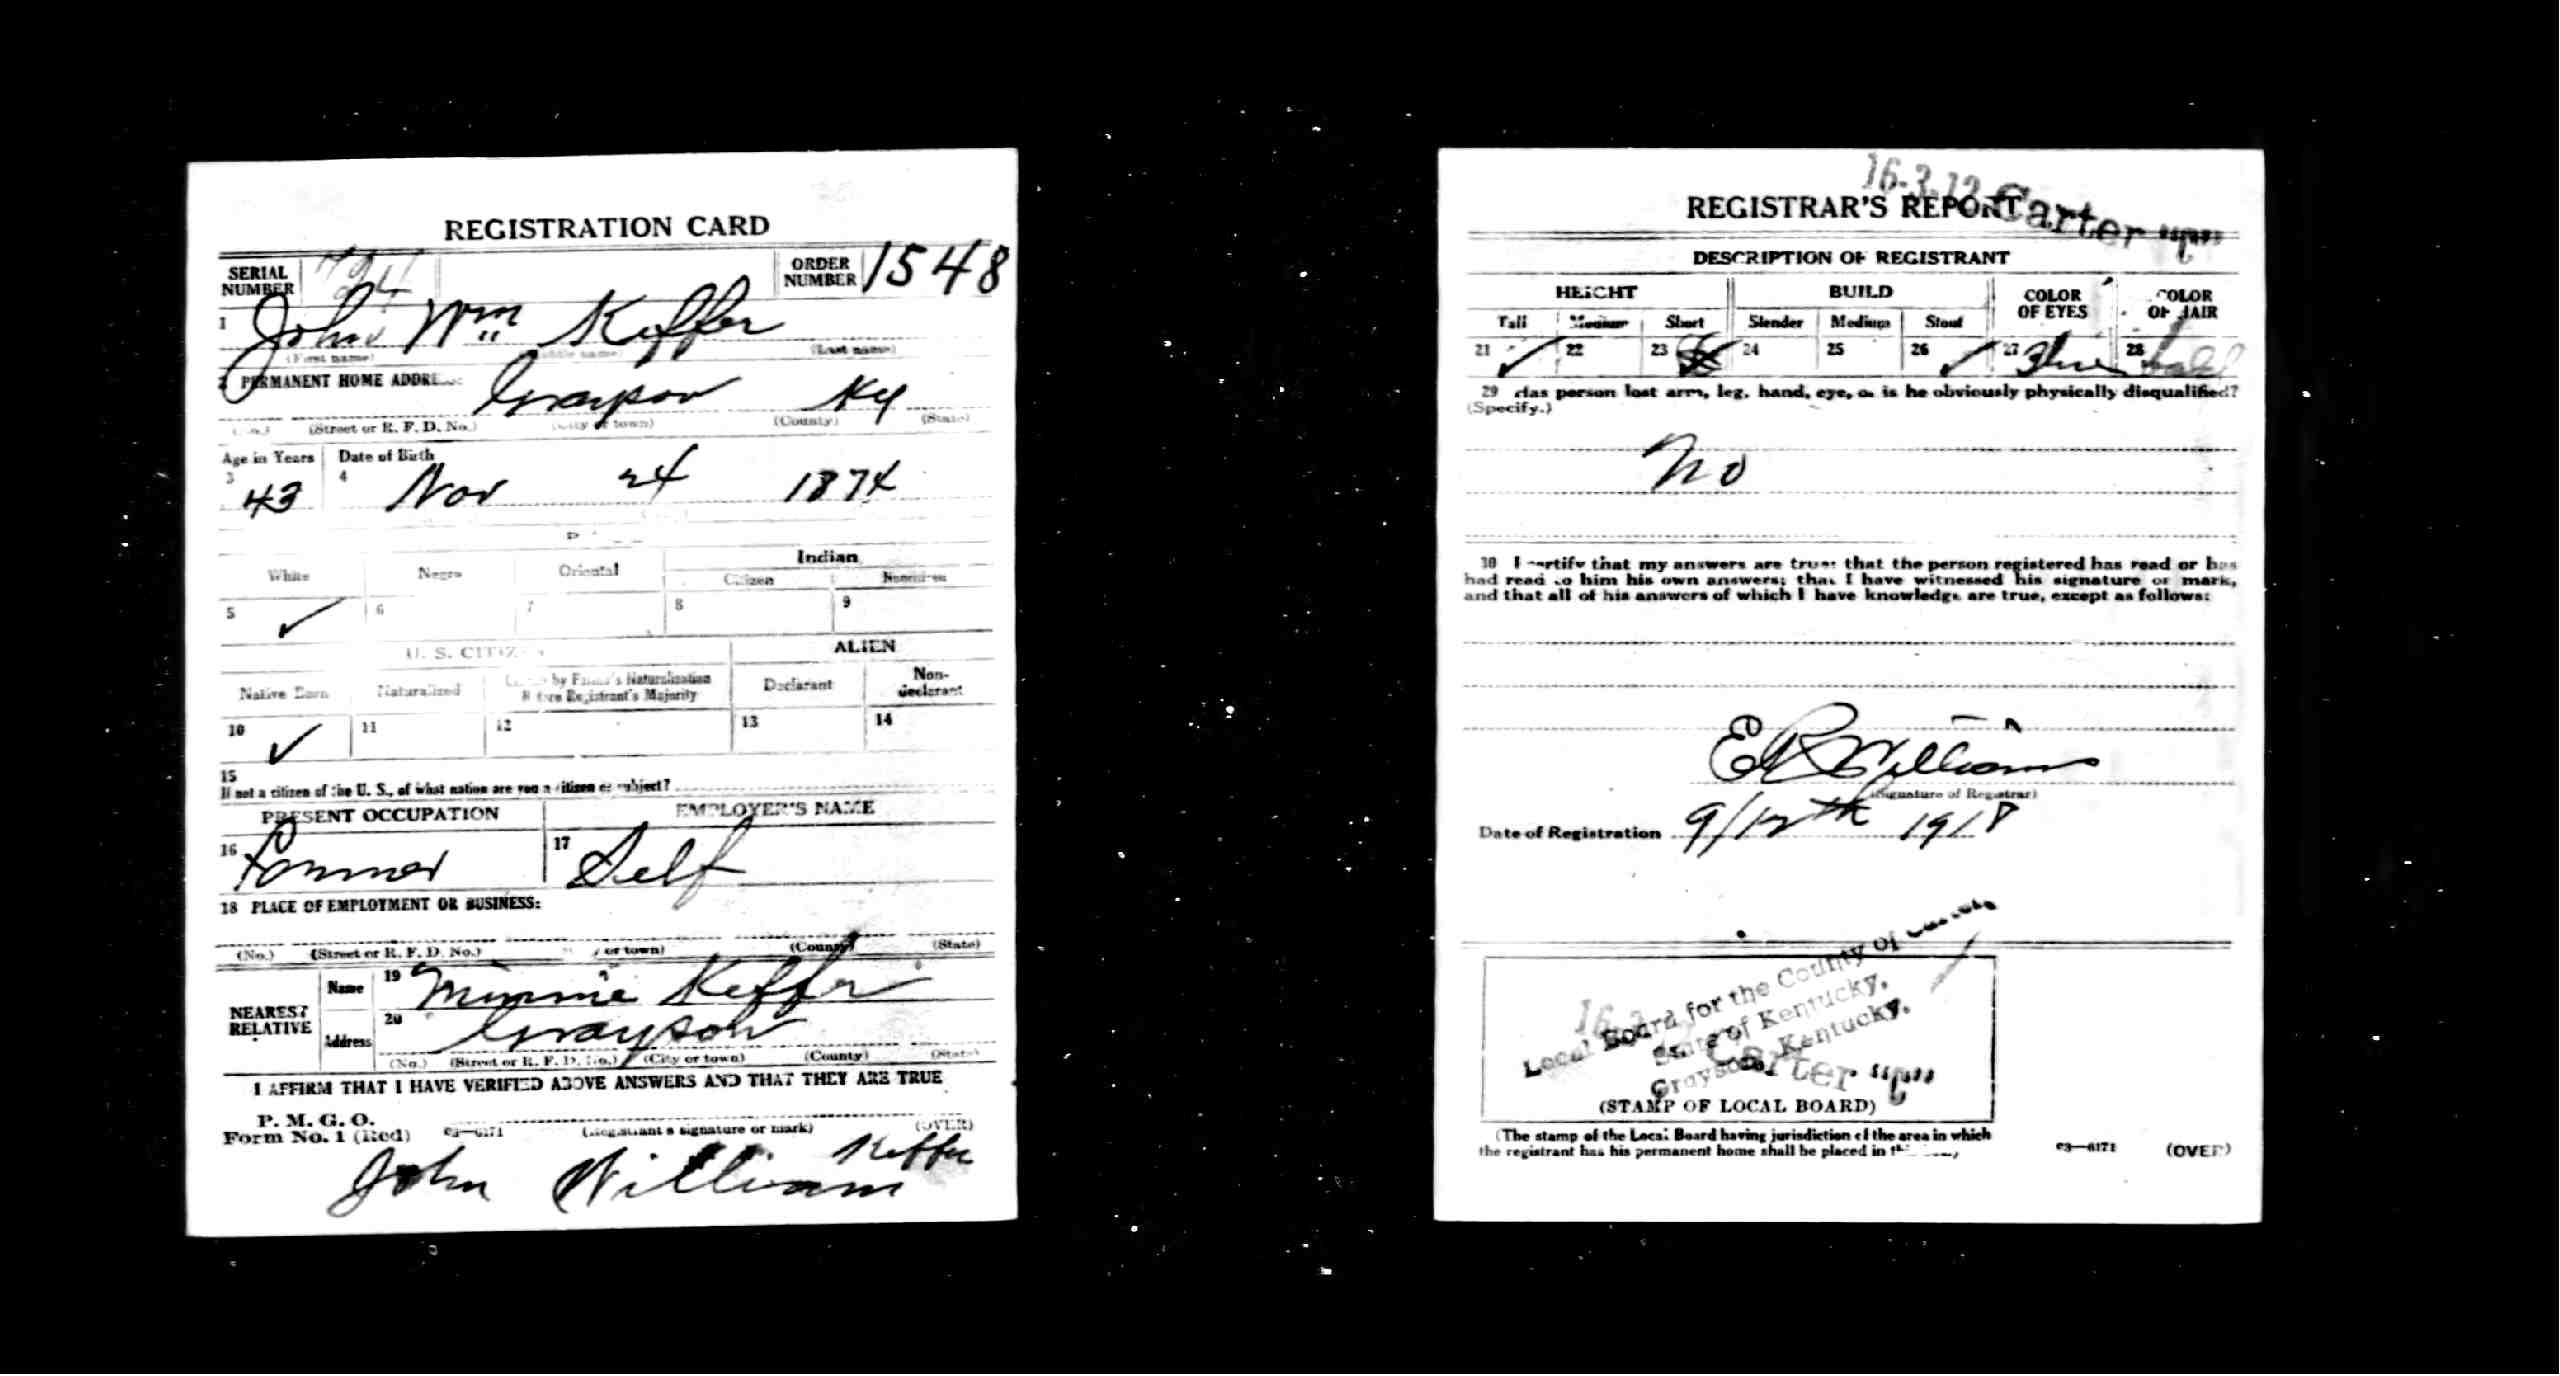 REGISTRATION CARD
SERIAL NUMBER
ORDER NUMBER 1548
1 John Wm Keffer
(First name) (Middle name) (Last name)
2 PERMANENT HOME ADDRESS: Grayson Ky
(No.) (Street or R. F. D. No.) (City or town) (County) (State)
Age in Years Date of Birth
3 43 4 Nov 24 1874
Indian
White Negro Oriental Citizen Noncitizen
5 ✓ 6 7 8 9
U. S. CITIZEN ALIEN
Native Born Naturalized Citizen by Father's Naturalization Before Registrant's Majority Declarant Non-declarant
10 ✓ 11 12 13 14
15
If not a citizen of the U. S., of what nation are you a citizen or subject?
PRESENT OCCUPATION EMPLOYER'S NAME
16 Farmer 17 Self
18 PLACE OF EMPLOYMENT OR BUSINESS:
(No.) (Street or R. F. D. No.) (City or town) (County) (State)
NEAREST RELATIVE Name 19 Minnie Keffer
Address 20 Grayson
(No.) (Street or R. F. D. No.) (City or town) (County) (State)
I AFFIRM THAT I HAVE VERIFIED ABOVE ANSWERS AND THAT THEY ARE TRUE
P. M. G. O.
Form No. 1 (Red) 03—6171 (Registrant's signature or mark) (OVER)
John William Keffer
16-3-12 Carter "C"
REGISTRAR'S REPORT
DESCRIPTION OF REGISTRANT
HEIGHT BUILD COLOR OF EYES COLOR OF HAIR
Tall Medium Short Slender Medium Stout
21 ✓ 22 23 24 25 26 ✓ 27 Blue 28 bald
29 Has person lost arm, leg, hand, eye, or is he obviously physically disqualified?
(Specify.)
No
30 I certify that my answers are true; that the person registered has read or has
had read to him his own answers; that I have witnessed his signature or mark,
and that all of his answers of which I have knowledge are true, except as follows:
E R Williams
(Signature of Registrar)
Date of Registration 9/12th 1918
Local Board for the County of Carter
State of Kentucky,
Grayson, Kentucky.
Carter "C"
(STAMP OF LOCAL BOARD)
(The stamp of the Local Board having jurisdiction of the area in which
the registrant has his permanent home shall be placed in this box.)
03—6171 (OVER)